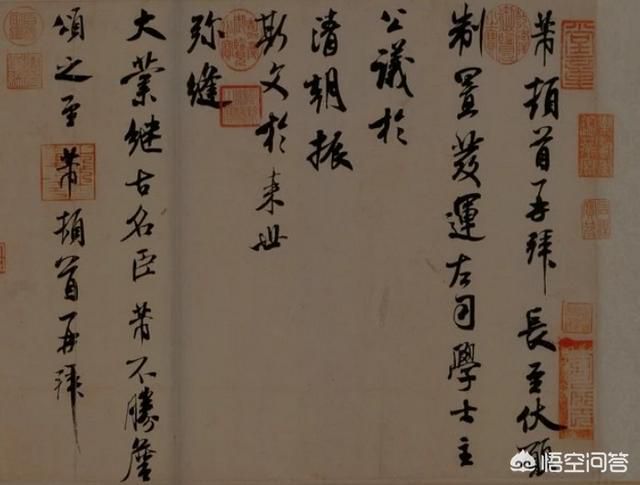 芾頓首再拜長至伏願
制置發運左司學士主
公議於
清朝振
斯文於来世
弥縫
大業繼古名臣芾不勝詹
頌之至芾頓首再拜
悟空问答